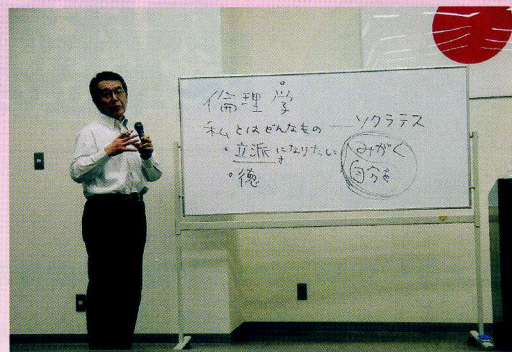 倫理学
私とはどんなもの ― ソクラテス
・立派になりたい みがく
・徳 自分を